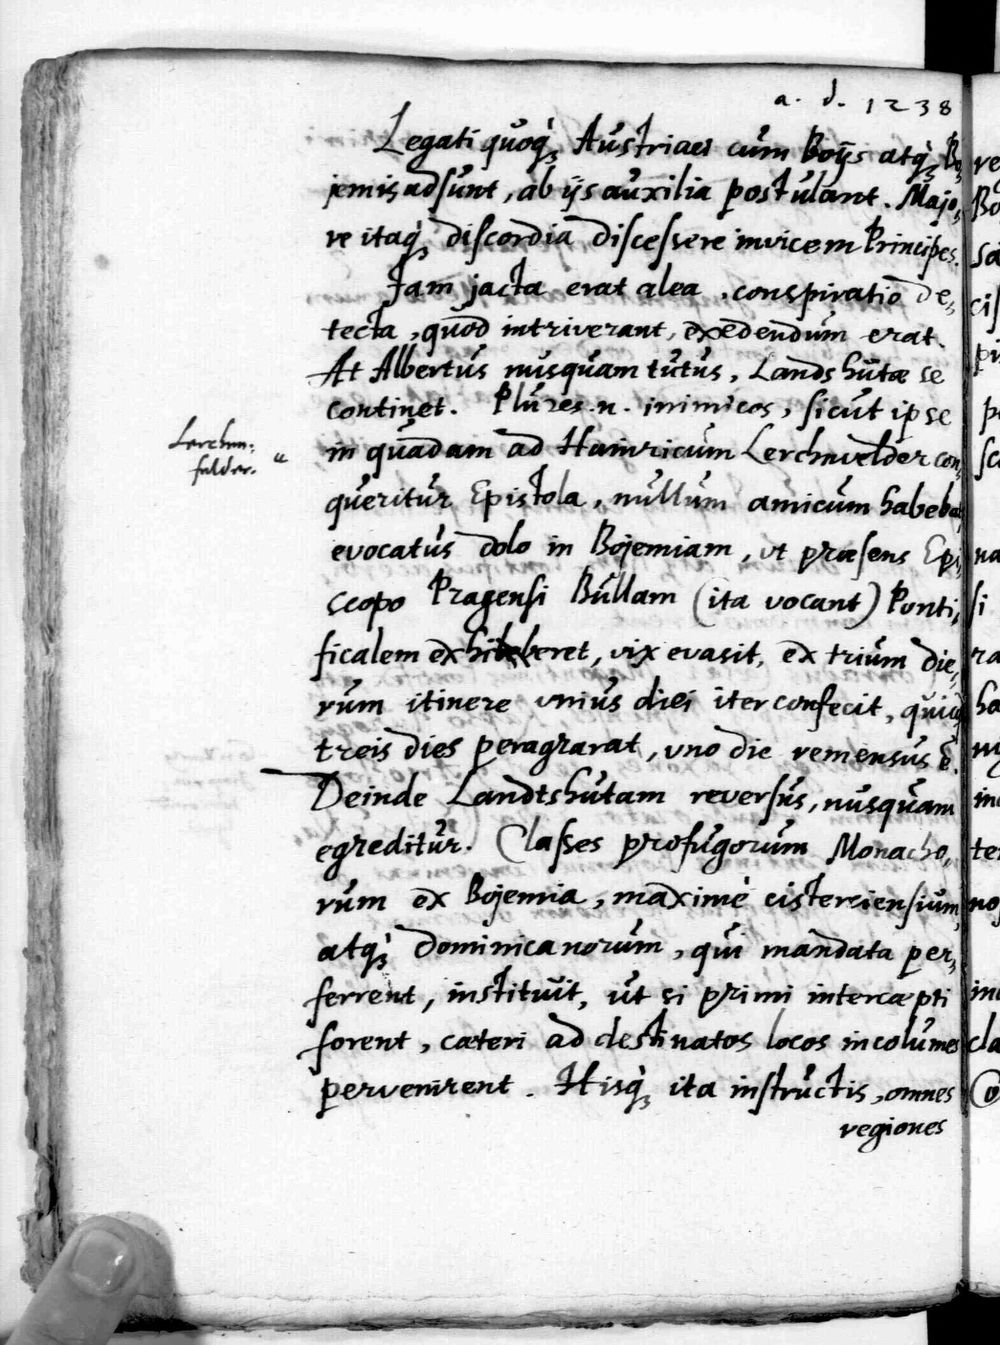 a. d. 1238
Legati quoq́; Austriaes cum Boijs atq́; Bo,
jemis adsunt, ab ijs auxilia postulant. Majo,
re itaq́; discordia discessere invicem Principes.
Jam jacta erat alea, conspiratio de,
tecta, quod intriverant, exedendum erat.
At Albertus nusquam tutus, Landshutæ se
continet. Plures .n. inimicos, sicut ipse
Lerchen:
felder. "
in quadam ad Hainricum Lerchnvelder con,
queritur Epistola, nullum amicum habeba
evocatus dolo in Bojemiam, ut præsens Epi,
scopo Pragensi Bullam (ita vocant) Ponti,
ficalem exhiberet, vix evasit, ex trium die,
rum itinere unius diei iter confecit, quiq;
treis dies peragrarat, uno die remensus ē.
Deinde Landtshutam reversus, nusquam
egreditur. Classes profugorum Monacho,
rum ex Bojemia, maximè cisterciensium,
atq́; Dominicanorum, qui mandata per,
ferrent, instituit, ut si primi intercæpti
forent, cæteri ad destinatos locos incolumes
pervenirent. Hisq́; ita instructis, omnes
regiones
re
Bo
sa
cis
pi
p
sc
na
si
ra
ha
ni
in
te
no
in
cla